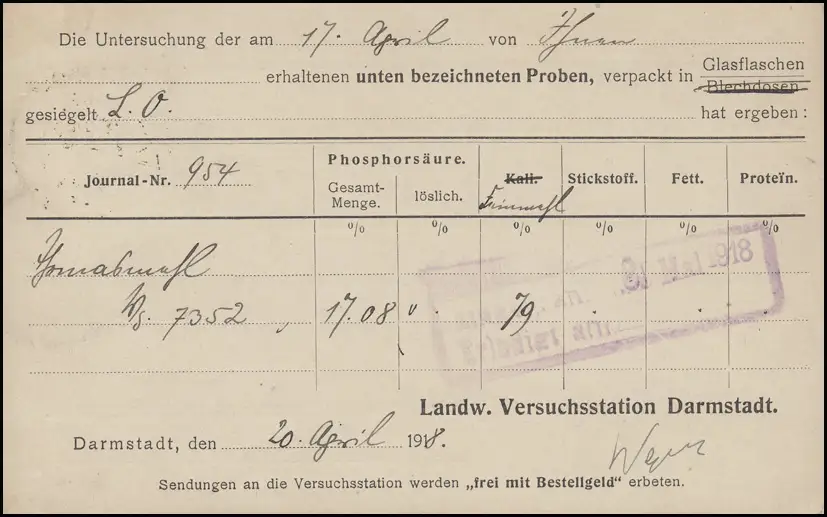 Die Untersuchung der am 17. April von Ihnen
erhaltenen unten bezeichneten Proben, verpackt in Glasflaschen
Blechdosen
gesiegelt L. O. hat ergeben:
Journal-Nr. 954
Phosphorsäure.
Gesamt-Menge.
löslich.
Kali.
Feinmehl
Stickstoff.
Fett.
Proteïn.
% % % % % %
Thomasmehl
Wg. 7352 17.08 " 79
31 Mai 1918
Erledigt am:
Landw. Versuchsstation Darmstadt.
Darmstadt, den 20. April 1918.
Sendungen an die Versuchsstation werden „frei mit Bestellgeld" erbeten.